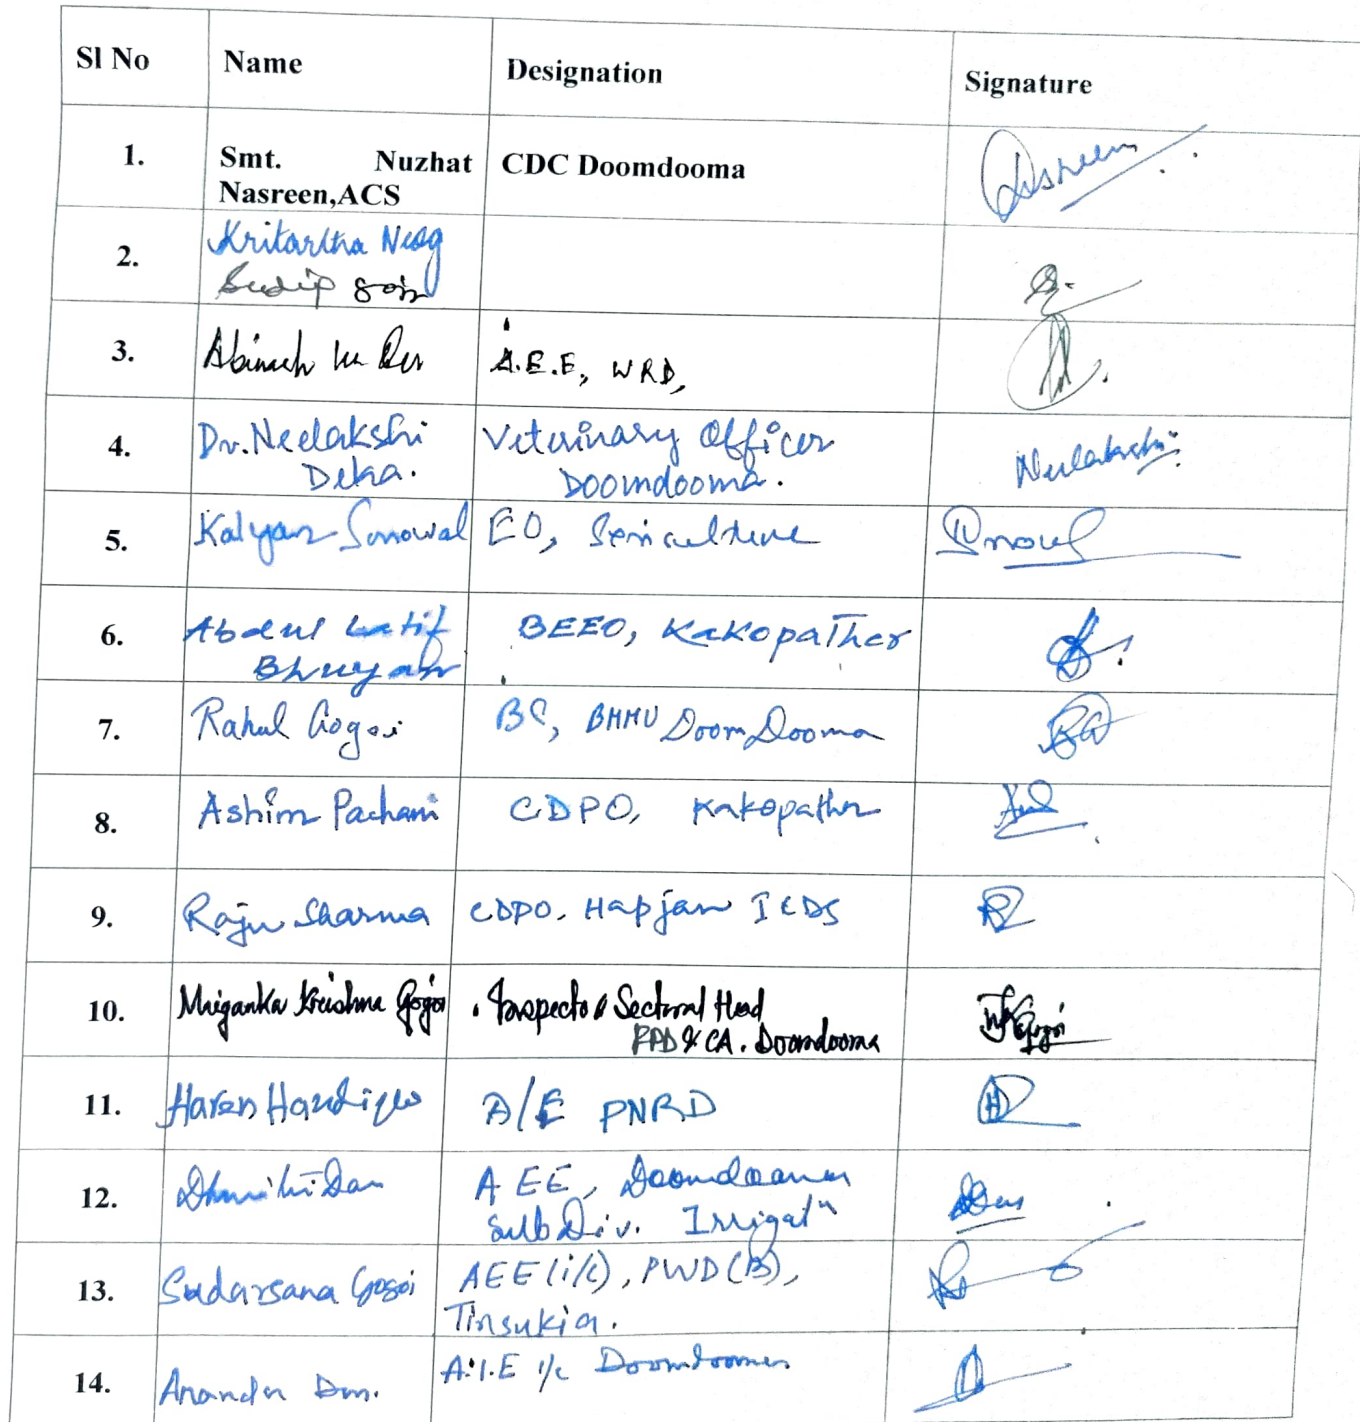 Sl No Name Designation Signature
1. Smt. Nuzhat CDC Doomdooma Nasreen
Nasreen,ACS
2. Kritartha Neog
Sudip
3. A.E.E, WRD,
4. Dr. Neelakshi Veterinary Officer Neelakshi
Deka. Doomdooma.
5. Kalyan Sonowal EO, Sericulture
6. Abdul Latif BEEO, Kakopather
Bhuyan
7. Rahul Gogoi BC, BMMU Doom Dooma
8. Ashim Pachani CDPO, Kakopather
9. Raju Sharma CDPO, Hapjan ICDS
10. Mriganka Krishna Gogoi Inspector Sectoral Head
& CA. Doomdooma
11. Haren Handique A/E PNRD
12. AEE, Doomdooma
Sub Div. Irrigatn
13. Sudarsana Gogoi AEE (i/c), PWD (B),
Tinsukia.
14. A.I.E i/c Doomdooma